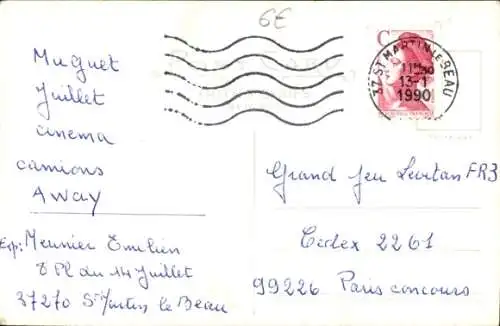 6€
C
37 ST MARTIN LE BEAU
13-1
1990
Muguet
Juillet
cinema
camions
AWAY
Exp: Meunier Emilien
8 Pl du 14 Juillet
37270 St Martin le Beau
Grand Jeu Levitan FR3
Cedex 2261
99226 Paris concours